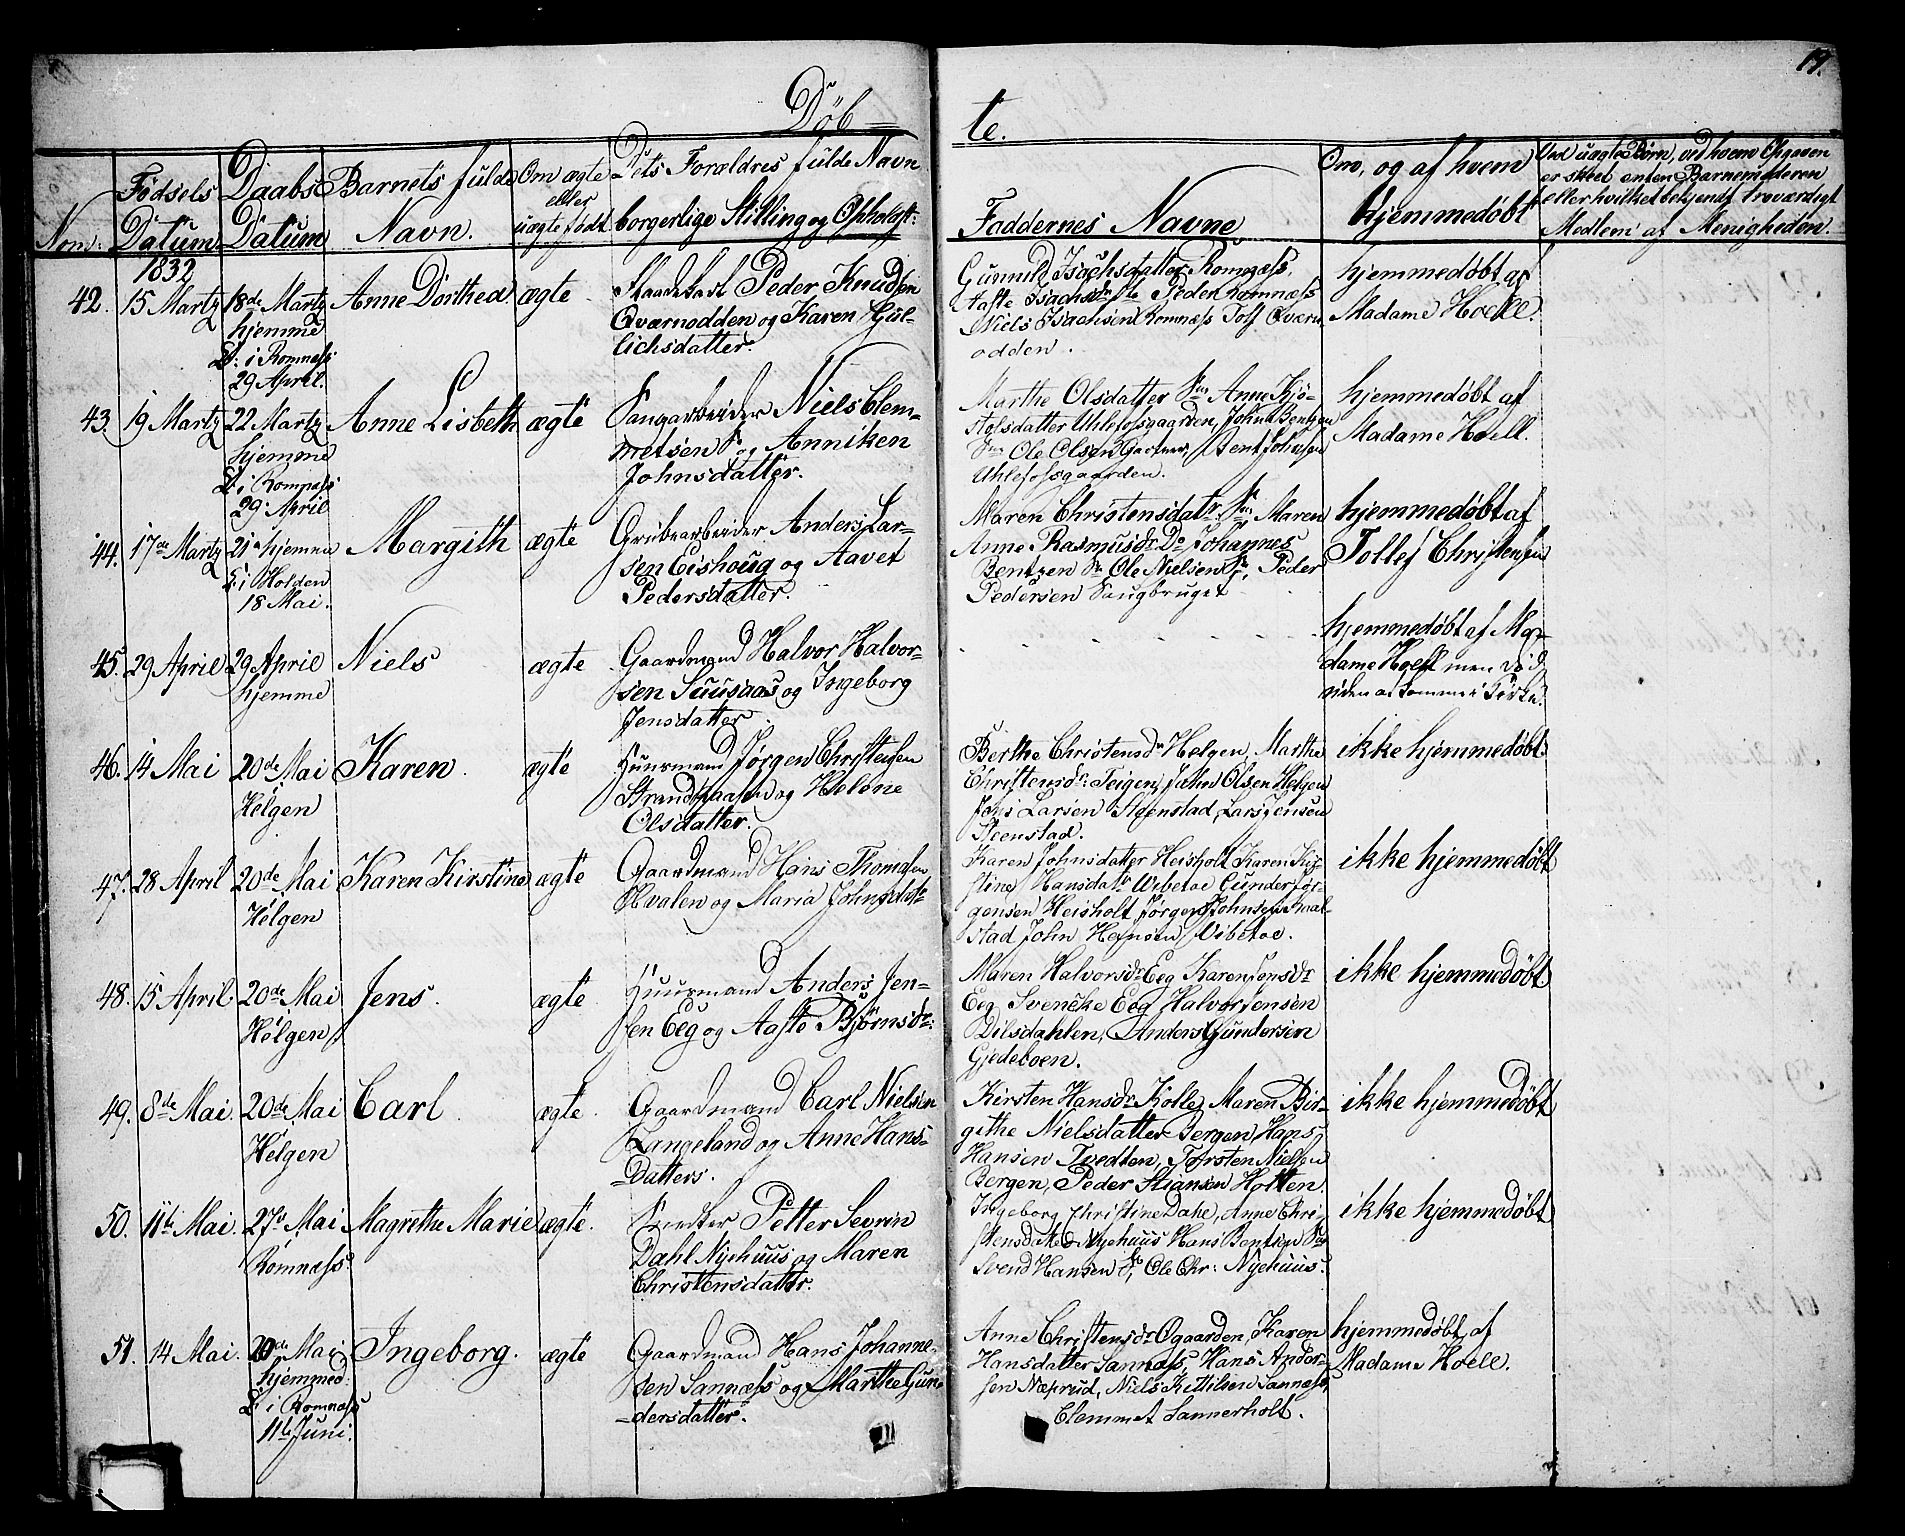 Døb
te.
19.
Nom:
Fødsels
Datum
Daabs
Datum
Barnets fulde
Navn.
Om ægte
eller
uægte født
Dets Forældres fulde Navn
borgerlige Stilling og Opholdst:
Faddernes Navne
Om, og af hvem
hjemmedøbt
Ved uægte Børn, ved hvem Opgaven
er skeet enten Barnemoderen
eller hvilket bekjendt troværdigt
Medlem af Menigheden.
1832
42. 15 Martz
18de Martz
hjemme
D. i Romnæss
29 April.
Anne Dorthea
ægte
Peder Knudsen
Qværnodden og Karen Gul-
lichsdatter.
Gunnild Isachsdatter Romnæss,
Aaste Isachsdr Peder Romnæss
Niels Isachsen Romnæss Qværn
odden.
hjemmedøbt af
Madame Hoell.
43. 19 Martz
22 Martz
hjemme
D. i Romnæss
29 April
Anne Lisbeth
ægte
Saugarbeider Niels Clem-
metsen og Anniken
Johnsdatter.
Marthe Olsdatter Anne Kjø-
stolsdatter Uhlefossgaarden, John Bentzen
Ole Olsen Gartner, Bent Johnsen
Uhlefossgaarden.
hjemmedøbt af
Madame Hoell.
44. 17de Martz
21de hjemme
D. i Holden
18 Mai.
Margith
ægte
Grubearbeider Anders Lar-
sen Eishoug og Aavet
Pedersdatter.
Maren Christensdatr Maren
Anne Rasmusdr Do Johannes
Bentzen Ole Nielsen, Peder
Pedersen Saugbruget
hjemmedøbt af
Tollef Christensen
45. 29 April
29 April
hjemme
Niels
ægte
Gaardmand Halvor Halvor-
sen Suusaas og Ingeborg
Jensdatter.
hjemmedøbt af Ma-
dame Hoell men død
46. 14 Mai
20de Mai
Helgen
Karen.
ægte
Huusmand Jørgen Christensen
og Helene
Olsdatter.
Berthe Christensdr Helgen, Marthe
Christensdr Teigen, John Olsen Helgen
Larsen Steenstad, Lars Jensen
Steenstad.
ikke hjemmedøbt.
47. 28 April
20de Mai
Helgen
Karen Kirstine
ægte
Gaardmand Hans Thomesen
og Maria Johnsdatr
Karen Johnsdatter Heisholt Karen Kir-
stine Hansdatr Vibetoe Gunder Jør-
gensen Heisholt Jørgen Johnsen
stad John Hansen Vibetoe.
ikke hjemmedøbt
48. 15 April
20de Mai
Helgen
Jens.
ægte
Huusmand Anders Jen-
sen Eeg og Aaste Bjørnsdr:
Maren Halvorsdr Eeg Karen Jensdr
Eeg Svencke Eeg Halvor Jensen
Dilsdahlen, Anders Gundersen
Gjedeboen.
ikke hjemmedøbt
49. 8de Mai.
20de Mai
Helgen
Carl.
ægte.
Gaardmand Carl Nielsen
Langeland og Anne Hans-
Datters.
Kirsten Hansdr Kolle, Maren Bir-
githe Nielsdatter Bergen, Hans
Hansen Tvedten, Torsten Nielsen
Bergen, Peder Stiansen Holten.
ikke hjemmedøbt
50. 11te Mai.
27de Mai
Romnæss
Magrethe Marie
ægte.
Petter Severin
Dahl Nyehuus og Maren
Christensdatter.
Ingeborg Christine Dahl, Anne Chri-
stensdatter Nyehuus Hans Bentzen
Svend Hansen Ole Chr: Nyehuus.
ikke hjemmedøbt
51. 14 Mai.
20de Mai
hjemmed.
D. i Romnæss
11te Juni.
Ingeborg.
ægte
Gaardmand Hans Johanne-
sen Sannæss og Marthe Gun-
dersdatter.
Anne Christensdr Øgaarden, Karen
Hansdatter Sannæss, Hans Ander-
sen Næprud, Niels Kittilsen Sannæss
Clemmet Sannerholt.
hjemmedøbt af
Madame Hoell.